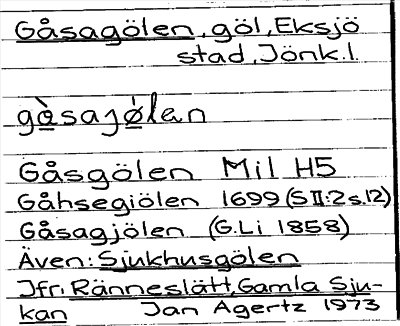 Gåsagölen, göl, Eksjö
stad, Jönk.l.
gåsajölan
Gåsgölen Mil H5
Gåhsegiölen 1699 (S II:2 s.12)
Gåsagjölen (G.Li 1858)
Även: Sjukhusgölen
Jfr: Ränneslätt, Gamla Sju-
kan Jan Agertz 1973